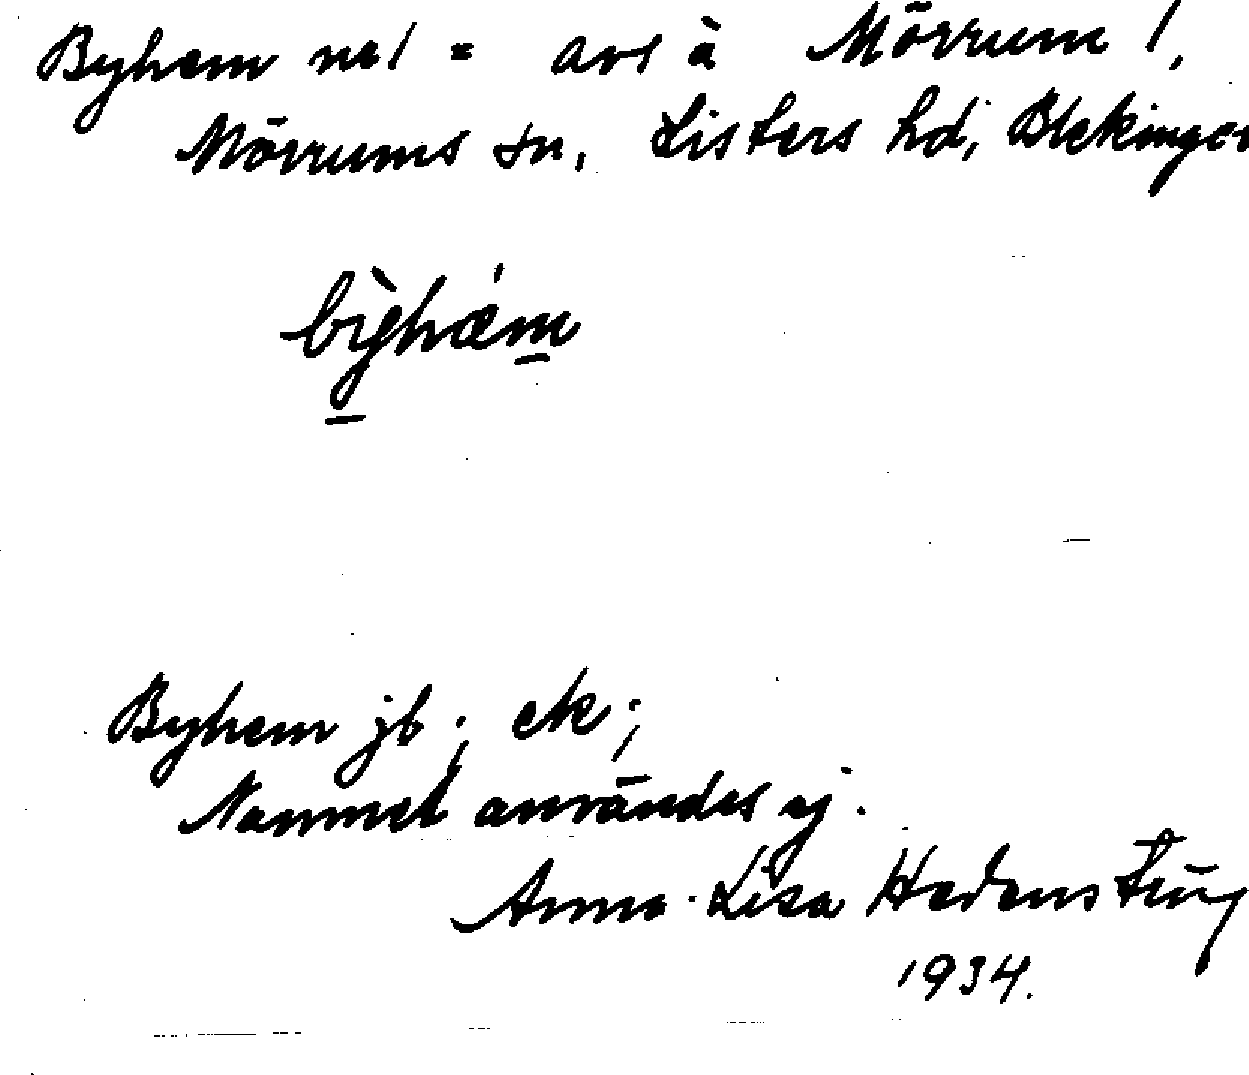 Byhem nr 1 = avs å Mörrum 1,
Mörrums sn, Listers hd, Blekinge
bỳhæ̀m
Byhem jb; ek;
Namnet användes ej.
Anna-Lisa Hedenstierna
1934.